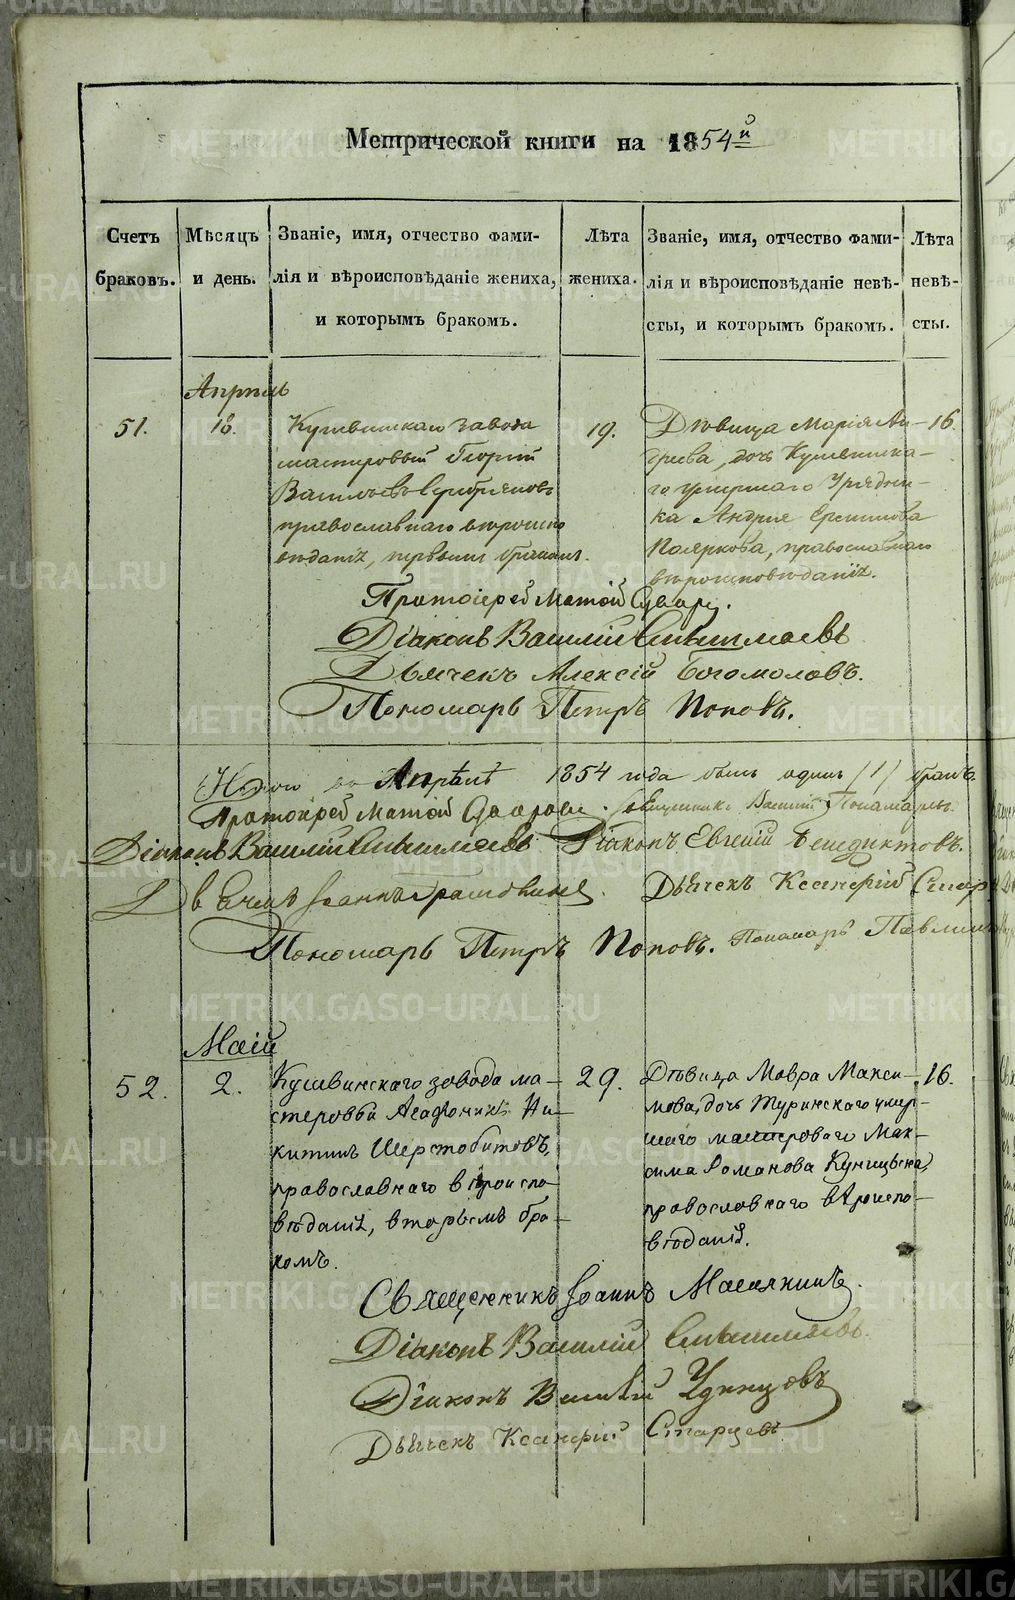 Метрической книги на 1854й
Счетъ браковъ.
Мѣсяцъ и день.
Званіе, имя, отчество фами-
лія и вѣроисповѣданіе жениха,
и которымъ бракомъ.
Лѣта жениха.
Званіе, имя, отчество фами-
лія и вѣроисповѣданіе невѣ-
сты, и которымъ бракомъ.
Лѣта невѣ-
сты.
Апрель
51.
18.
Кушвинскаго завода
мастеровый Георгій
Васильевъ Серебряковъ
православнаго вѣроиспо
вѣданія, первымъ бракомъ.
19.
Дѣвица Марія Ан-
дреева, дочь Кушвинска-
го умершаго Урядни-
ка Андрея
Пояркова, православнаго
вѣроисповѣданія.
16.
Протоіерей Матѳій
Діаконъ Василій
Дьячекъ Алексій Богомоловъ.
Пономарь Петръ Поповъ.
Итого въ Апрѣлѣ 1854 года былъ одинъ /1/ бракъ
Протоіерей Матѳій Священникъ Василій Понамаревъ.
Діаконъ Василій Діаконъ Евгеній Бенедиктовъ.
Дьячекъ Іоаннъ Дьячекъ Ксенофній
Пономарь Петръ Поповъ. Понамарь
Маій
52.
2.
Кушвинскаго завода ма-
стеровой Агафоникъ Ни-
китинъ Шерстобитовъ,
православнаго вѣроиспо-
вѣданія, вторымъ бра-
комъ.
29.
Дѣвица Мавра Макси-
мова, дочь Туринскаго умер-
шаго мастероваго Мак-
сима Романова Кунщикова,
православнаго вѣроиспо-
вѣданія.
16.
Священникъ Іоаннъ
Діаконъ Василій
Діаконъ Василій Удинцовъ
Дьячекъ Ксенофій Старцевъ
METRIKI.GASO-URAL.RU